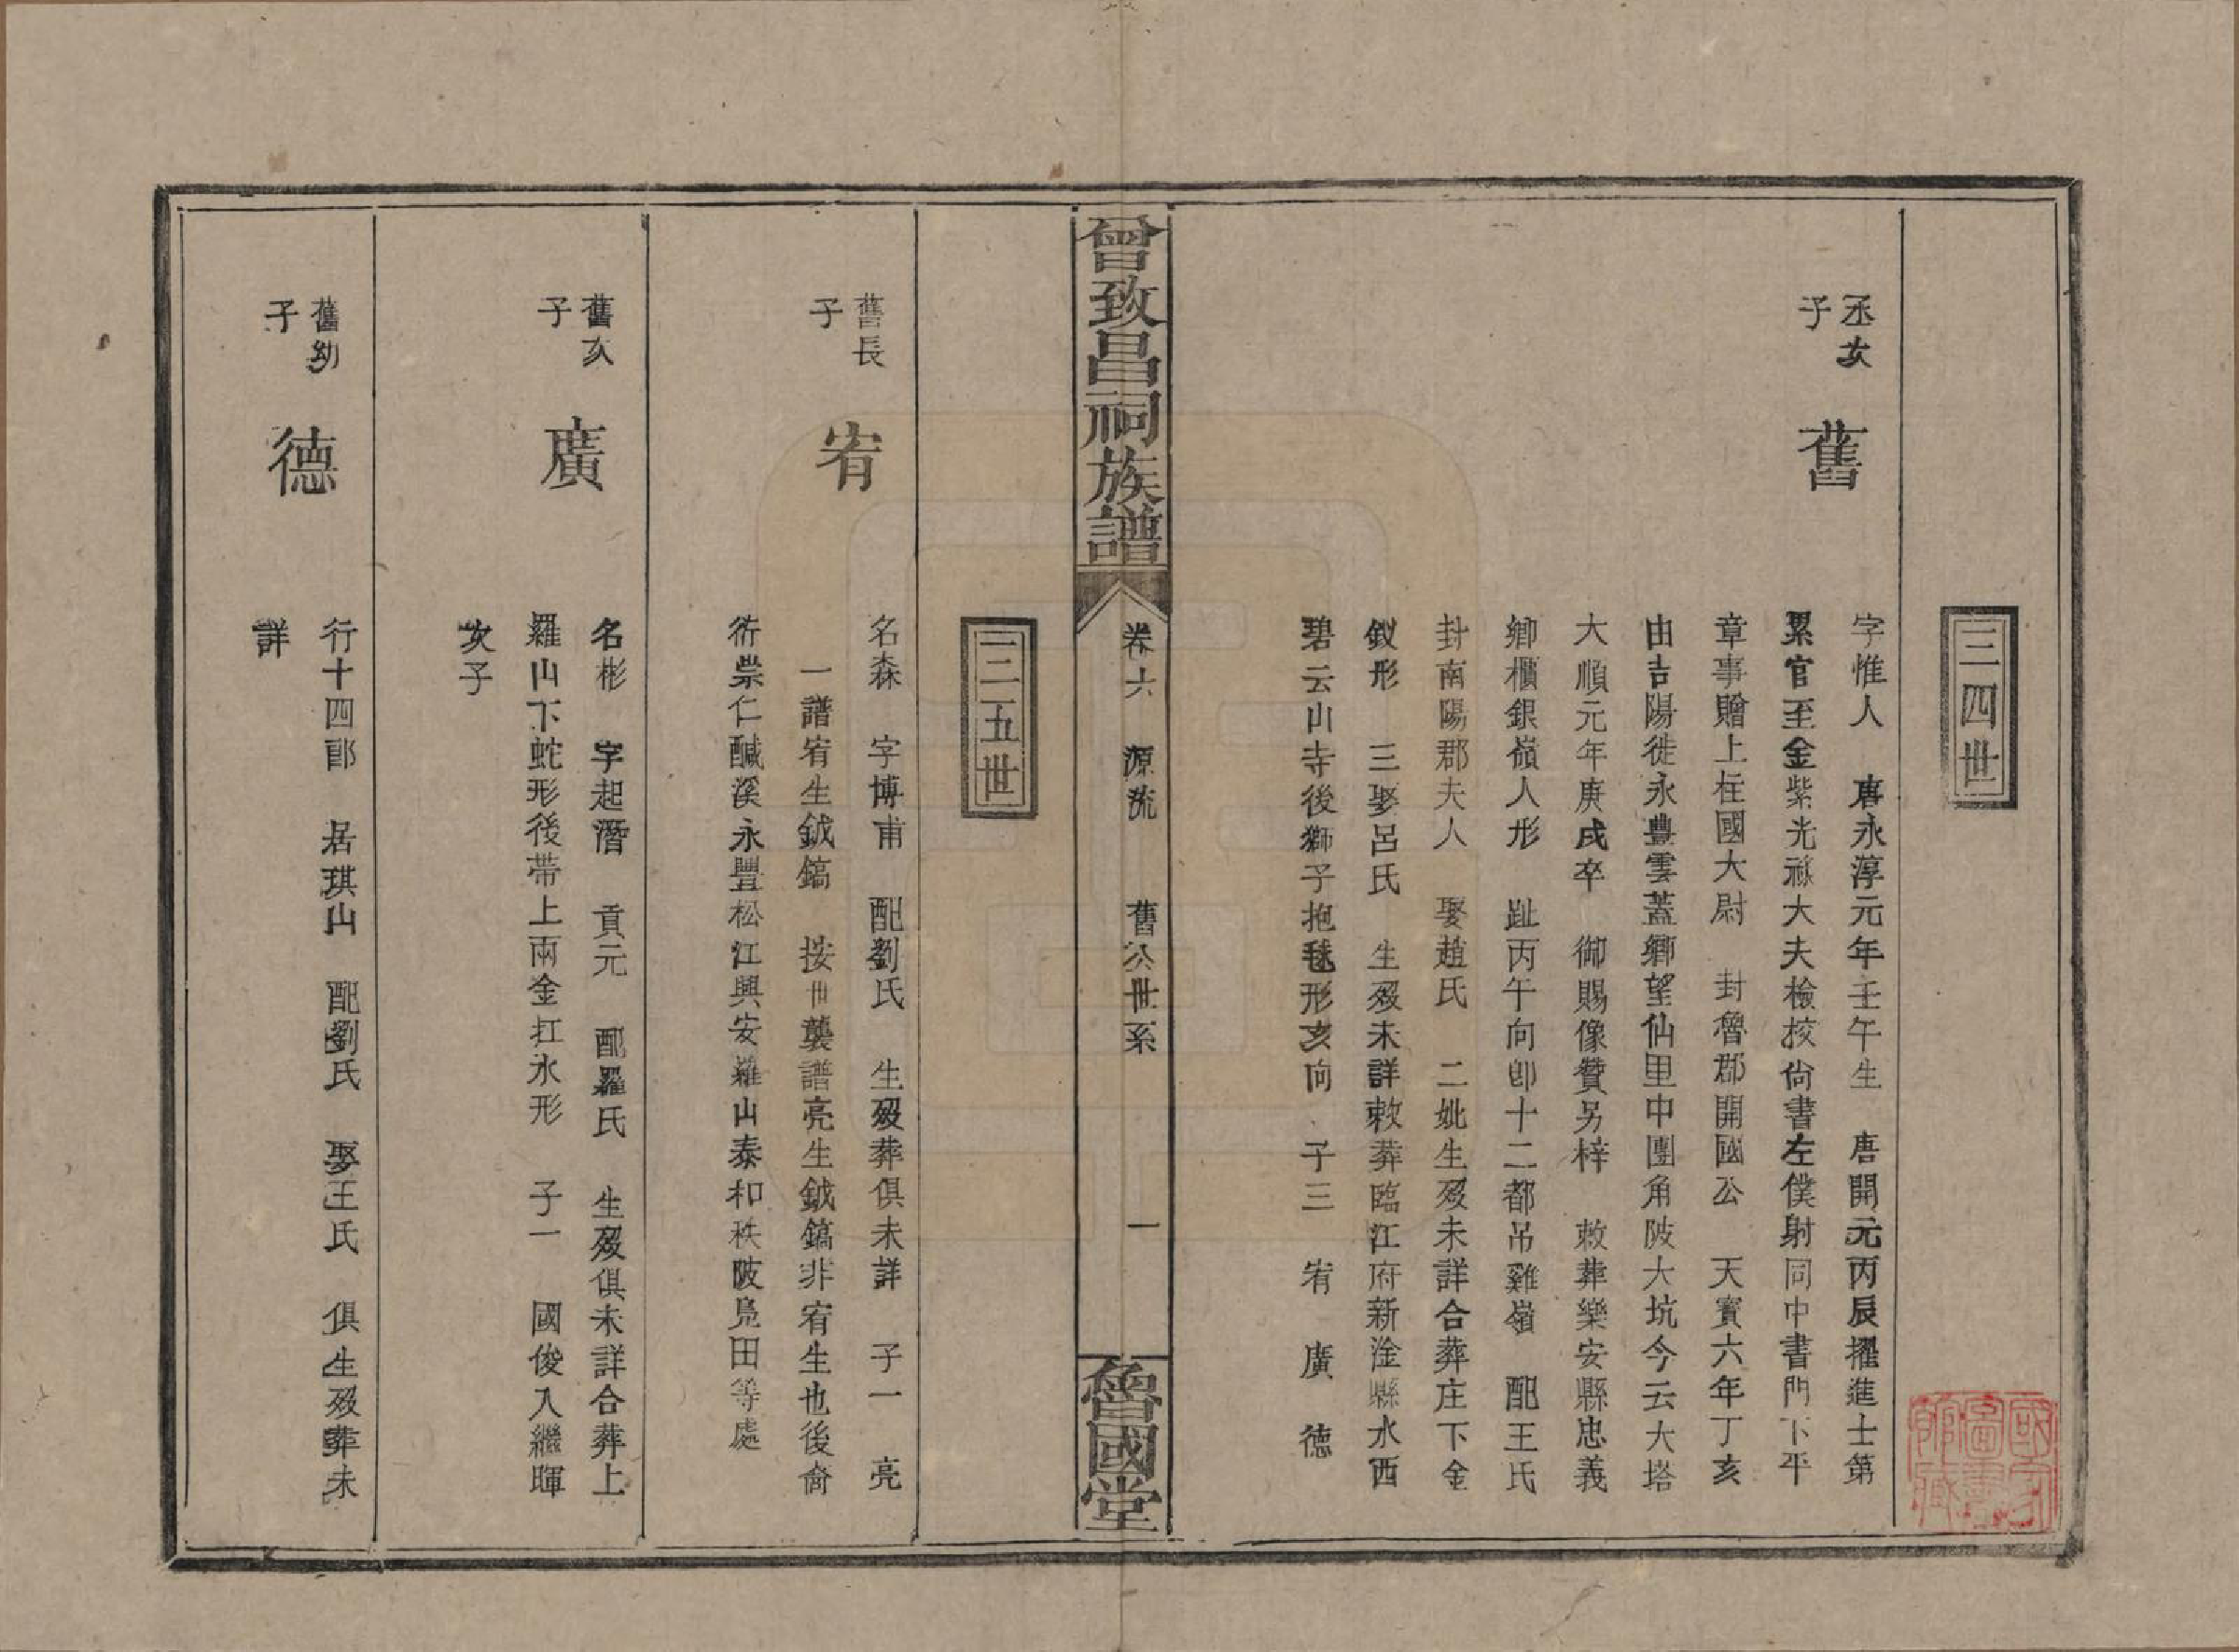 三四世
丕次
子
舊
字惟人　唐永淳元年壬午生　唐開元丙辰擢進士第
累官至金紫光祿大夫檢校尙書左僕射同中書門下平
章事贈上柱國大尉　封魯郡開國公　天寶六年丁亥
由吉陽徙永豐雲蓋鄉望仙里中團角陂大坑今云大塔
大順元年庚戌卒　御賜像贊另梓　敕葬樂安縣忠義
鄉櫃銀嶺人形　趾丙午向卽十二都吊雞嶺　配王氏
封南陽郡夫人　娶趙氏　二妣生歿未詳合葬庄下金
釵形　三娶呂氏　生歿未詳敕葬臨江府新淦縣水西
碧云山寺後獅子抱毬形亥向　子三　宥　廣　德
曾致昌祠族譜
卷六　源流　舊公世系　一
魯國堂
三五世
舊長
子
宥
名森　字博甫　配劉氏　生歿葬俱未詳　子一　亮
一譜宥生鉞鎬　按世襲譜亮生鉞鎬非宥生也後裔
衍崇仁鹹溪永豐松江興安羅山泰和秩陂凫田等處
舊次
子
廣
名彬　字起潛　貢元　配羅氏　生歿俱未詳合葬上
羅山下蛇形後帶上兩金扛水形　子一　國俊入繼暉
次子
舊幼
子
德
行十四郎　居琪山　配劉氏　娶王氏　俱生歿葬未
詳
國家
圖書
館藏